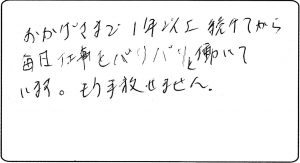 おかげさまで1年以上続けてから
毎日仕事をバリバリと働いて
います。もう手放せません。